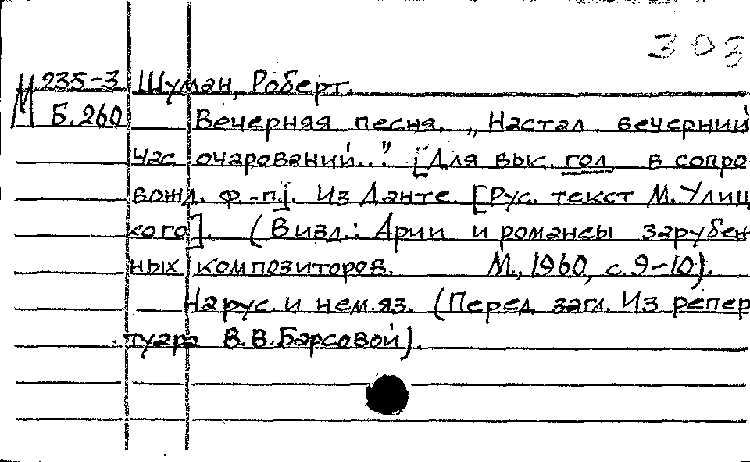 303
М 235-3 Шуман, Роберт.
Б. 260 Вечерняя песня. „Настал вечерний
час очарований..." [Для выс. гол. в сопро
вожд. ф.-п.]. Из Данте. [Рус. текст М. Улиц
кого]. (В изд.: Арии и романсы зарубеж
ных композиторов. М., 1960, с. 9-10).
На рус. и нем. яз. (Перед загл. Из репер
туара В.В. Барсовой).